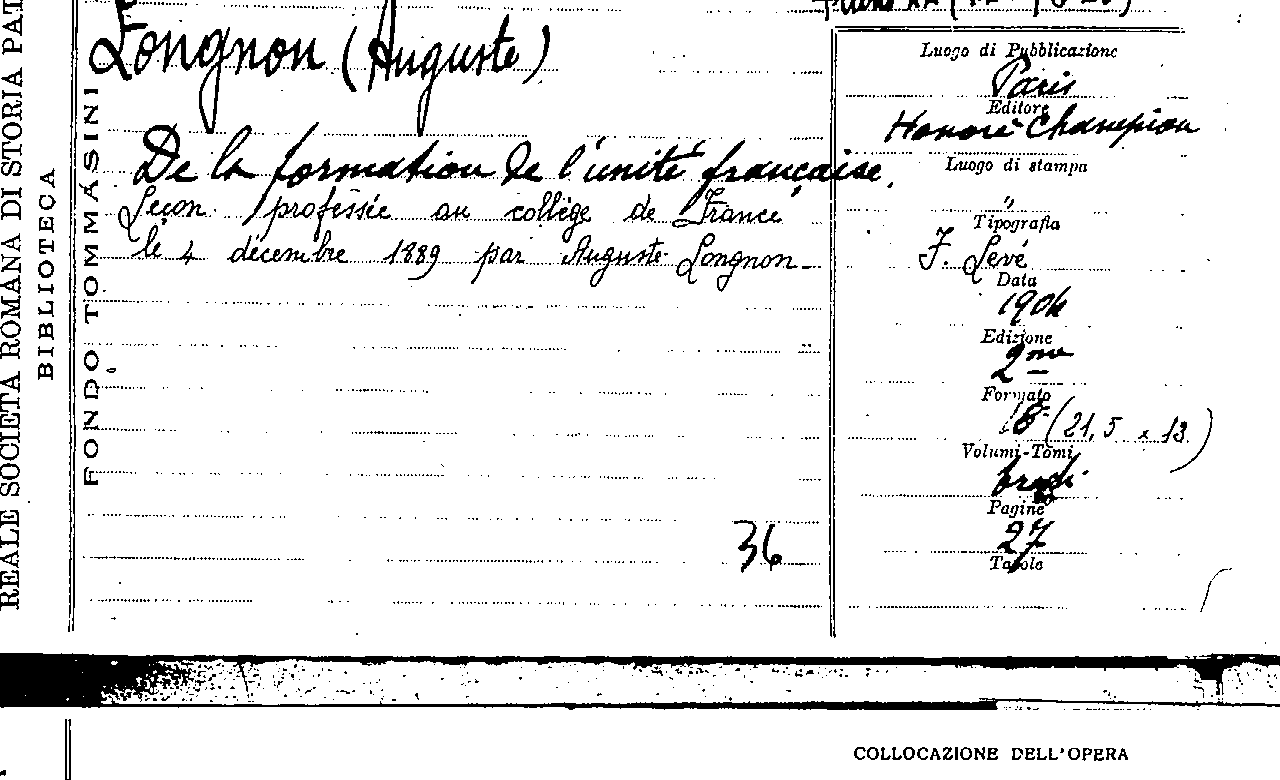 REALE SOCIETÀ ROMANA DI STORIA PAT
BIBLIOTECA
FONDO TOMMASINI
Longnon (Auguste)
De la formation de l'unité française.
Leçon professée au collège de France
le 4 décembre 1889 par Auguste Longnon
36
Luogo di Pubblicazione
Paris
Editore
Honoré Champion
Luogo di stampa
"
Tipografia
F. Levé
Data
1904
Edizione
2me
Formato
18° (21,5 x 13)
Volumi-Tomi
Pagine
27
Tavole
COLLOCAZIONE DELL'OPERA